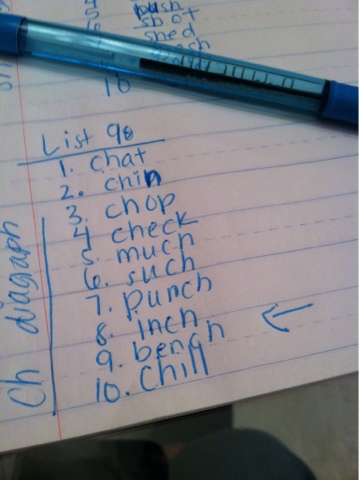 5. push
shot
shed
10
List 9a
1. chat
2. chin
3. chop
4 check
5. much
6. such
7. punch
8. inch
9. bench
10. Chill
Ch diagraph